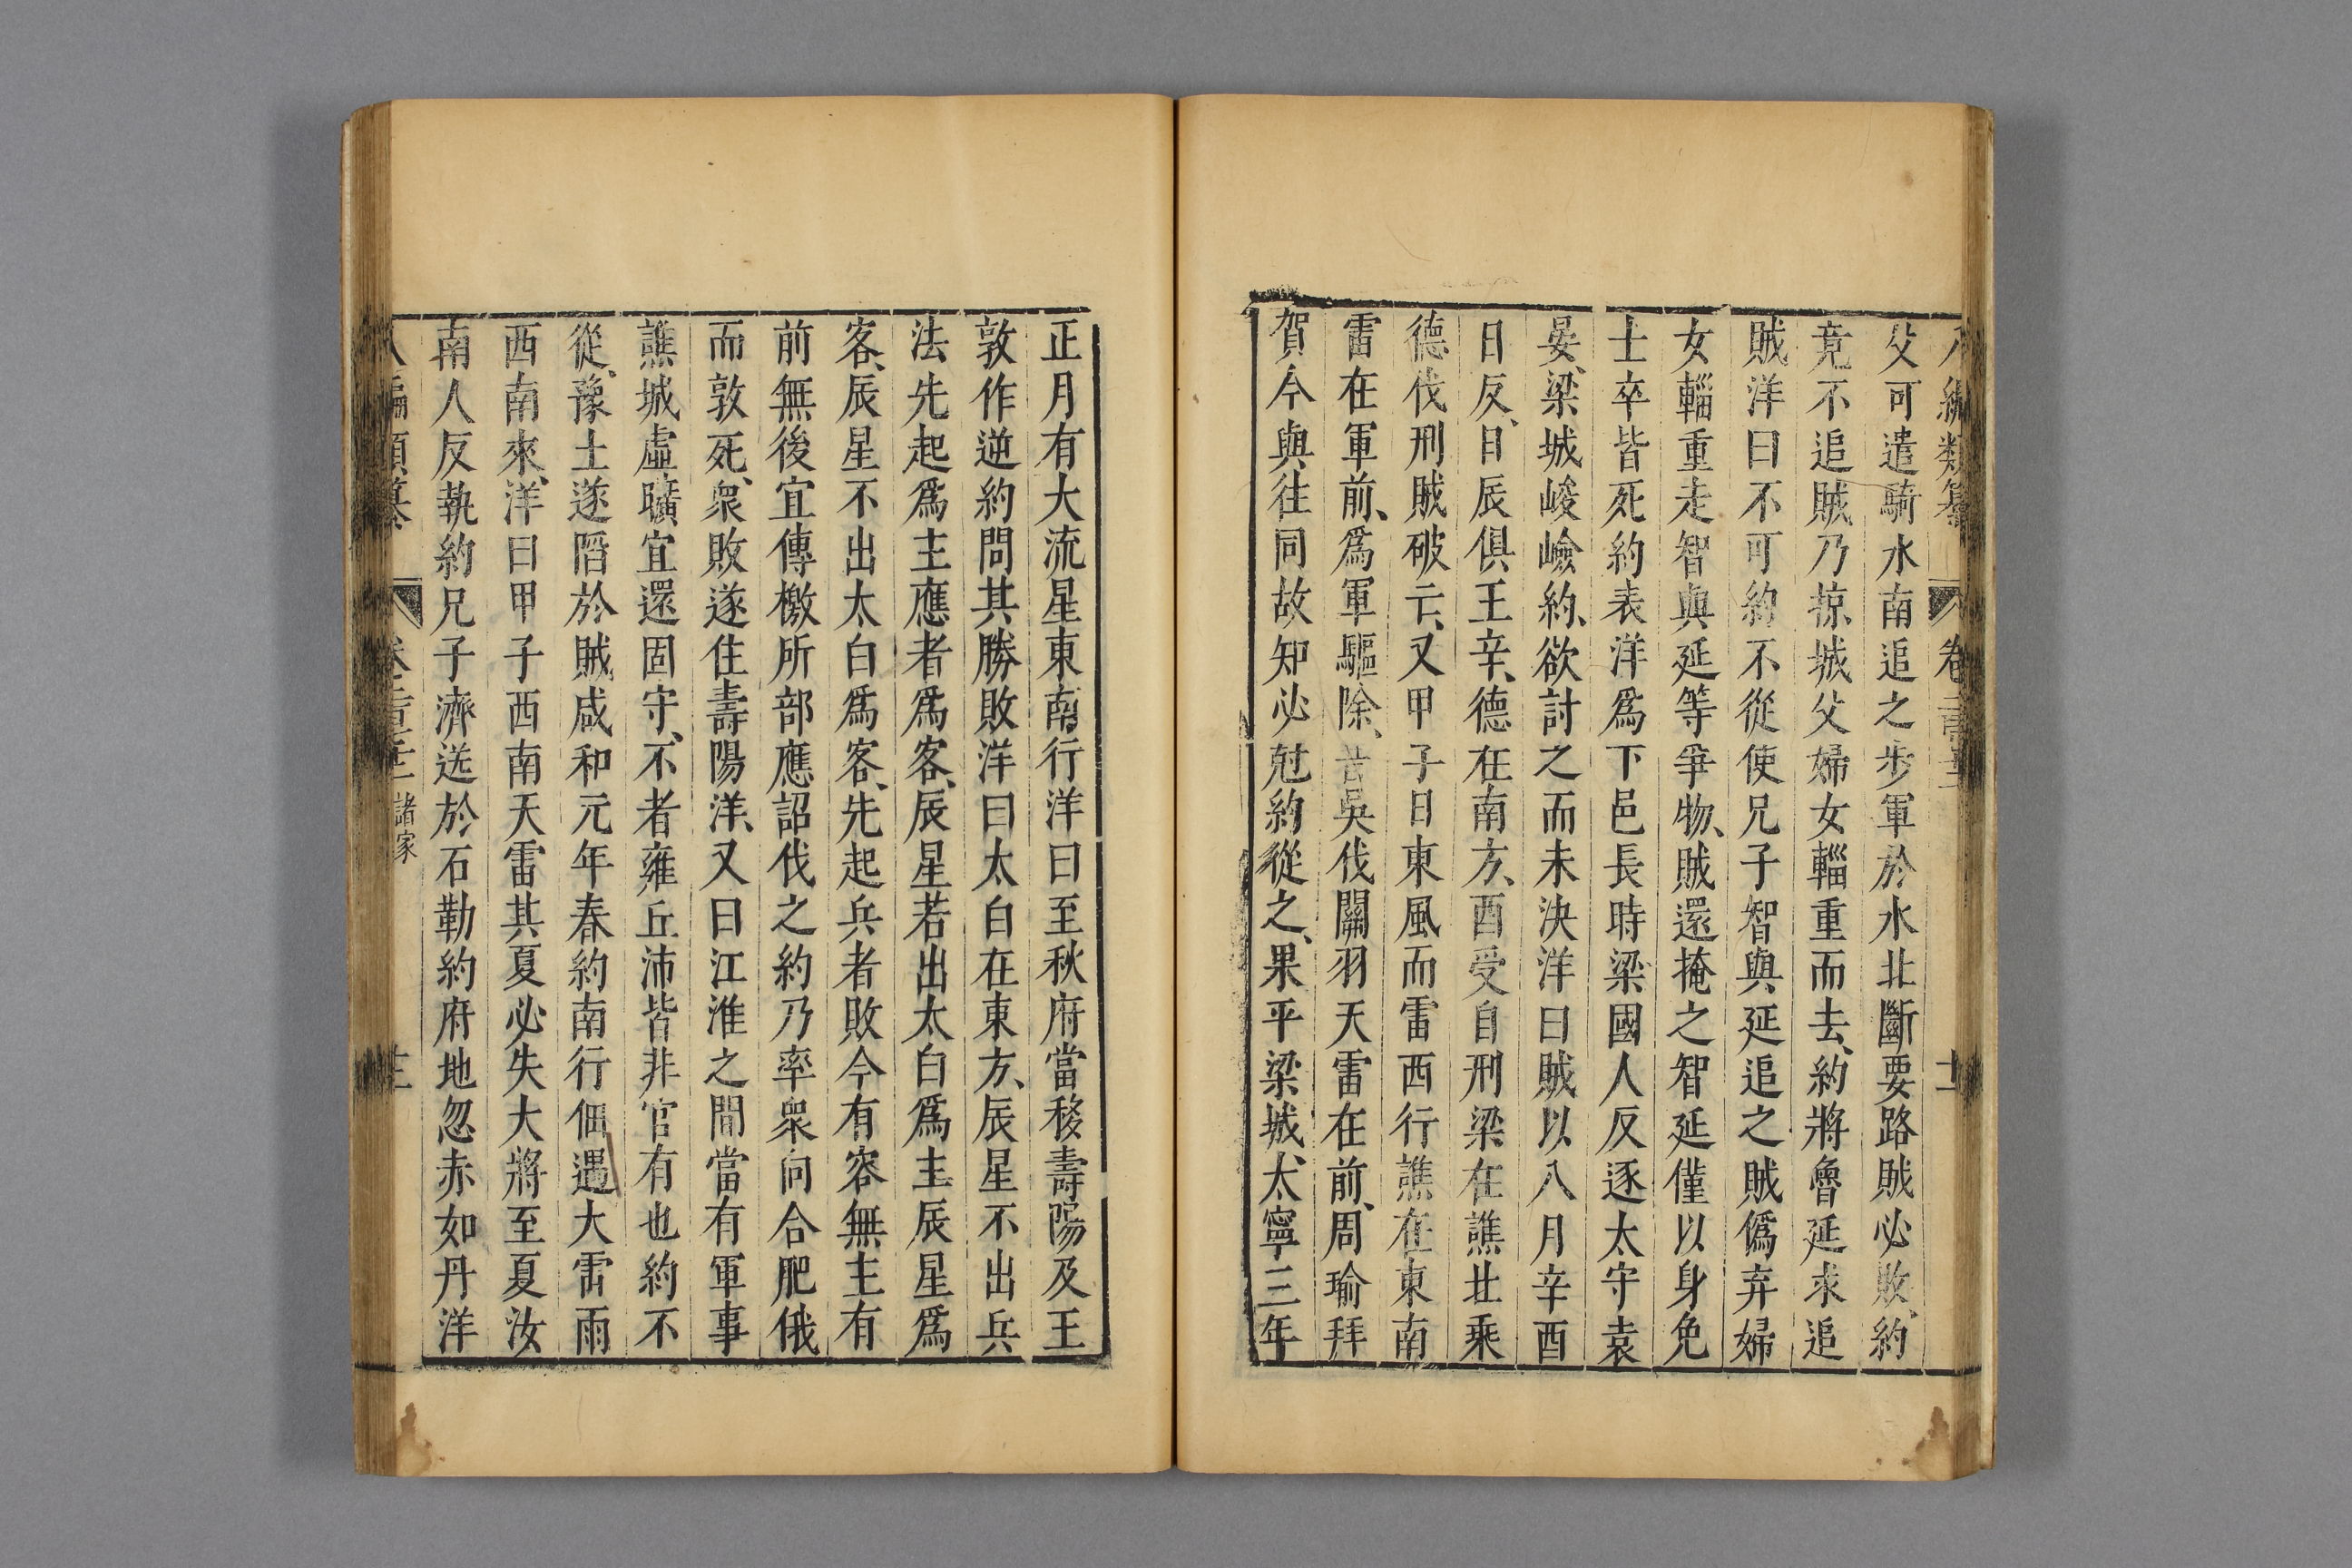 八編類纂 卷一百
父可遣騎水南追之步軍於水北斷要路賊必敗、約
竟不追賊乃掠城父婦女輜重而去、約將魯延求追
賊洋曰不可約不從使兄子智與延追之賊偽弃婦
女輜重走智與延等爭物、賊還掩之智延僅以身免
士卒皆死約表洋爲下邑長時梁國人反逐太守袁
晏、梁城峻嶮約、欲討之而未決洋曰賊以八月辛酉
日反、日辰俱王辛、德在南方、酉受自刑梁在譙北乘
德伐刑賊破亡、又甲子日東風而雷西行譙在東南
雷在軍前、爲軍驅除、昔吳伐關羽天雷在前、周瑜拜
賀今與往同故知必尅約從之、果平梁城、太寧三年
正月有大流星東南行洋曰至秋府當移壽陽及王
敦作逆約問其勝敗洋曰太白在東方、辰星不出兵
法先起爲主應者爲客、辰星若出太白爲主辰星爲
客、辰星不出太白爲客、先起兵者敗今有客無主有
前無後宜傳檄所部應詔伐之約乃率衆向合肥俄
而敦死、衆敗遂住壽陽洋、又曰江淮之間當有軍事
譙城虛曠宜還固守、不者雍丘沛皆非官有也約不
從、豫土遂陷於賊咸和元年春約南行佃遇大雷雨
西南來、洋曰甲子西南天雷其夏必失大將至夏汝
南人反執約兄子濟送於石勒約府地忽赤如丹洋
八編類纂 諸家